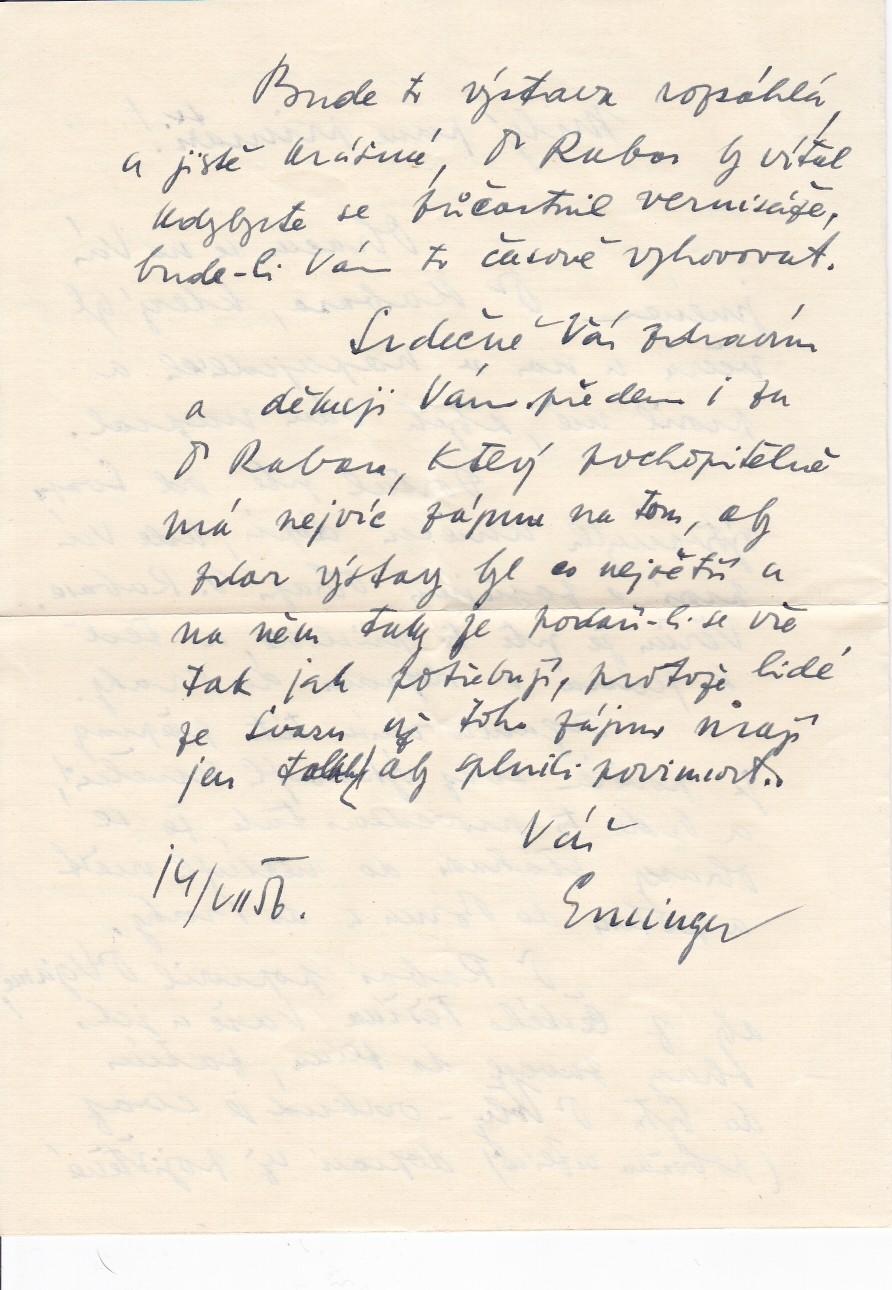 Bude to výstava rozsáhlá,
a jistě krásná, Dr Rabas by vítal
kdybyste se zúčastnil vernisáže,
bude-li Vám to časově vyhovovat.
Srdečně Vás zdravím
a děkuji Vám předem i za
Dr Rabasa, který pochopitelně
má nejvíc zájmu na tom, aby
zdar výstavy byl co největší a
na něm taky je podaří-li se vše
tak jak potřebují, protože lidé
ze Svazu už toho zájmu mají
jen aby splnili povinnost.
Váš
14/VII 56.
Emingr